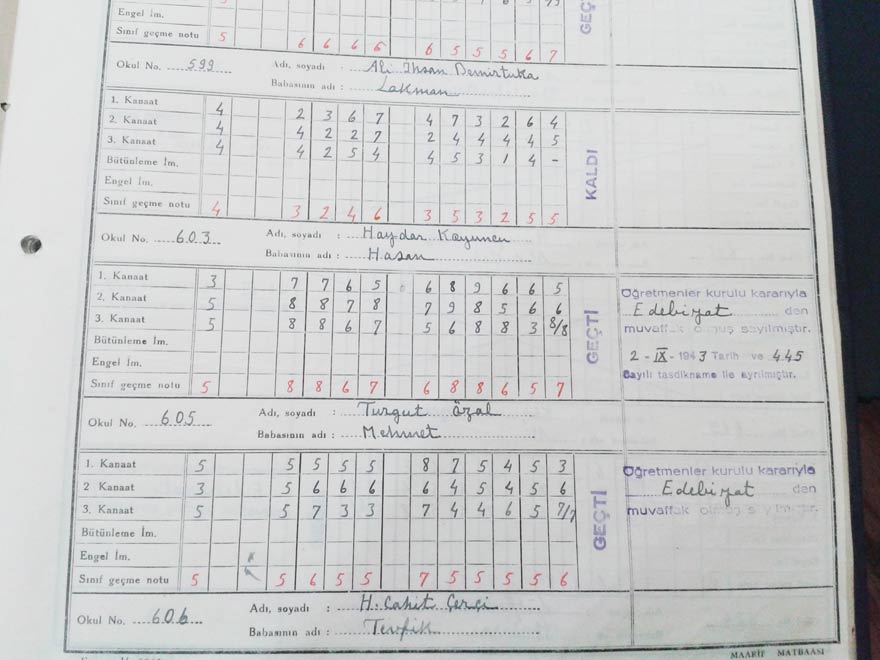 Engel İm.
Sınıf geçme notu 5 6 6 6 6 6 5 5 5 6 7
GEÇTİ
Okul No. 599 Adı, soyadı : Ali İhsan Demirtuka
Babasının adı : Lakman
1. Kanaat 4 2 3 6 7 4 7 3 2 6 4
2. Kanaat 4 4 2 2 7 2 4 4 4 4 5
3. Kanaat 4 4 2 5 4 4 5 3 1 4 -
Bütünleme İm.
Engel İm.
Sınıf geçme notu 4 3 2 4 6 3 5 3 2 5 5
KALDI
Okul No. 603 Adı, soyadı : Haydar Koyuncu
Babasının adı : Hasan
1. Kanaat 3 7 7 6 5 6 8 9 6 6 5
2. Kanaat 5 8 8 7 8 7 9 8 5 6 6
3. Kanaat 5 8 8 6 7 5 6 8 8 3 8/8
Bütünleme İm.
Engel İm.
Sınıf geçme notu 5 8 8 6 7 6 8 8 6 5 7
GEÇTİ
Öğretmenler kurulu kararıyla
Edebiyat den
muvaffak olmuş sayılmıştır.
2 - IX - 1943 Tarih ve 445
Sayılı tasdikname ile ayrılmıştır.
Okul No. 605 Adı, soyadı : Turgut Özal
Babasının adı : Mehmet
1. Kanaat 5 5 5 5 5 8 7 5 4 5 3
2 Kanaat 3 5 6 6 6 6 4 5 4 5 6
3. Kanaat 5 5 7 3 3 7 4 4 6 5 7/7
Bütünleme İm.
Engel İm.
Sınıf geçme notu 5 5 6 5 5 7 5 5 5 5 6
GEÇTİ
Öğretmenler kurulu kararıyla
Edebiyat den
muvaffak olmuş sayılmıştır.
Okul No. 606 Adı, soyadı : H. Cahit Çerçi
Babasının adı : Tevfik
MAARİF MATBAASI